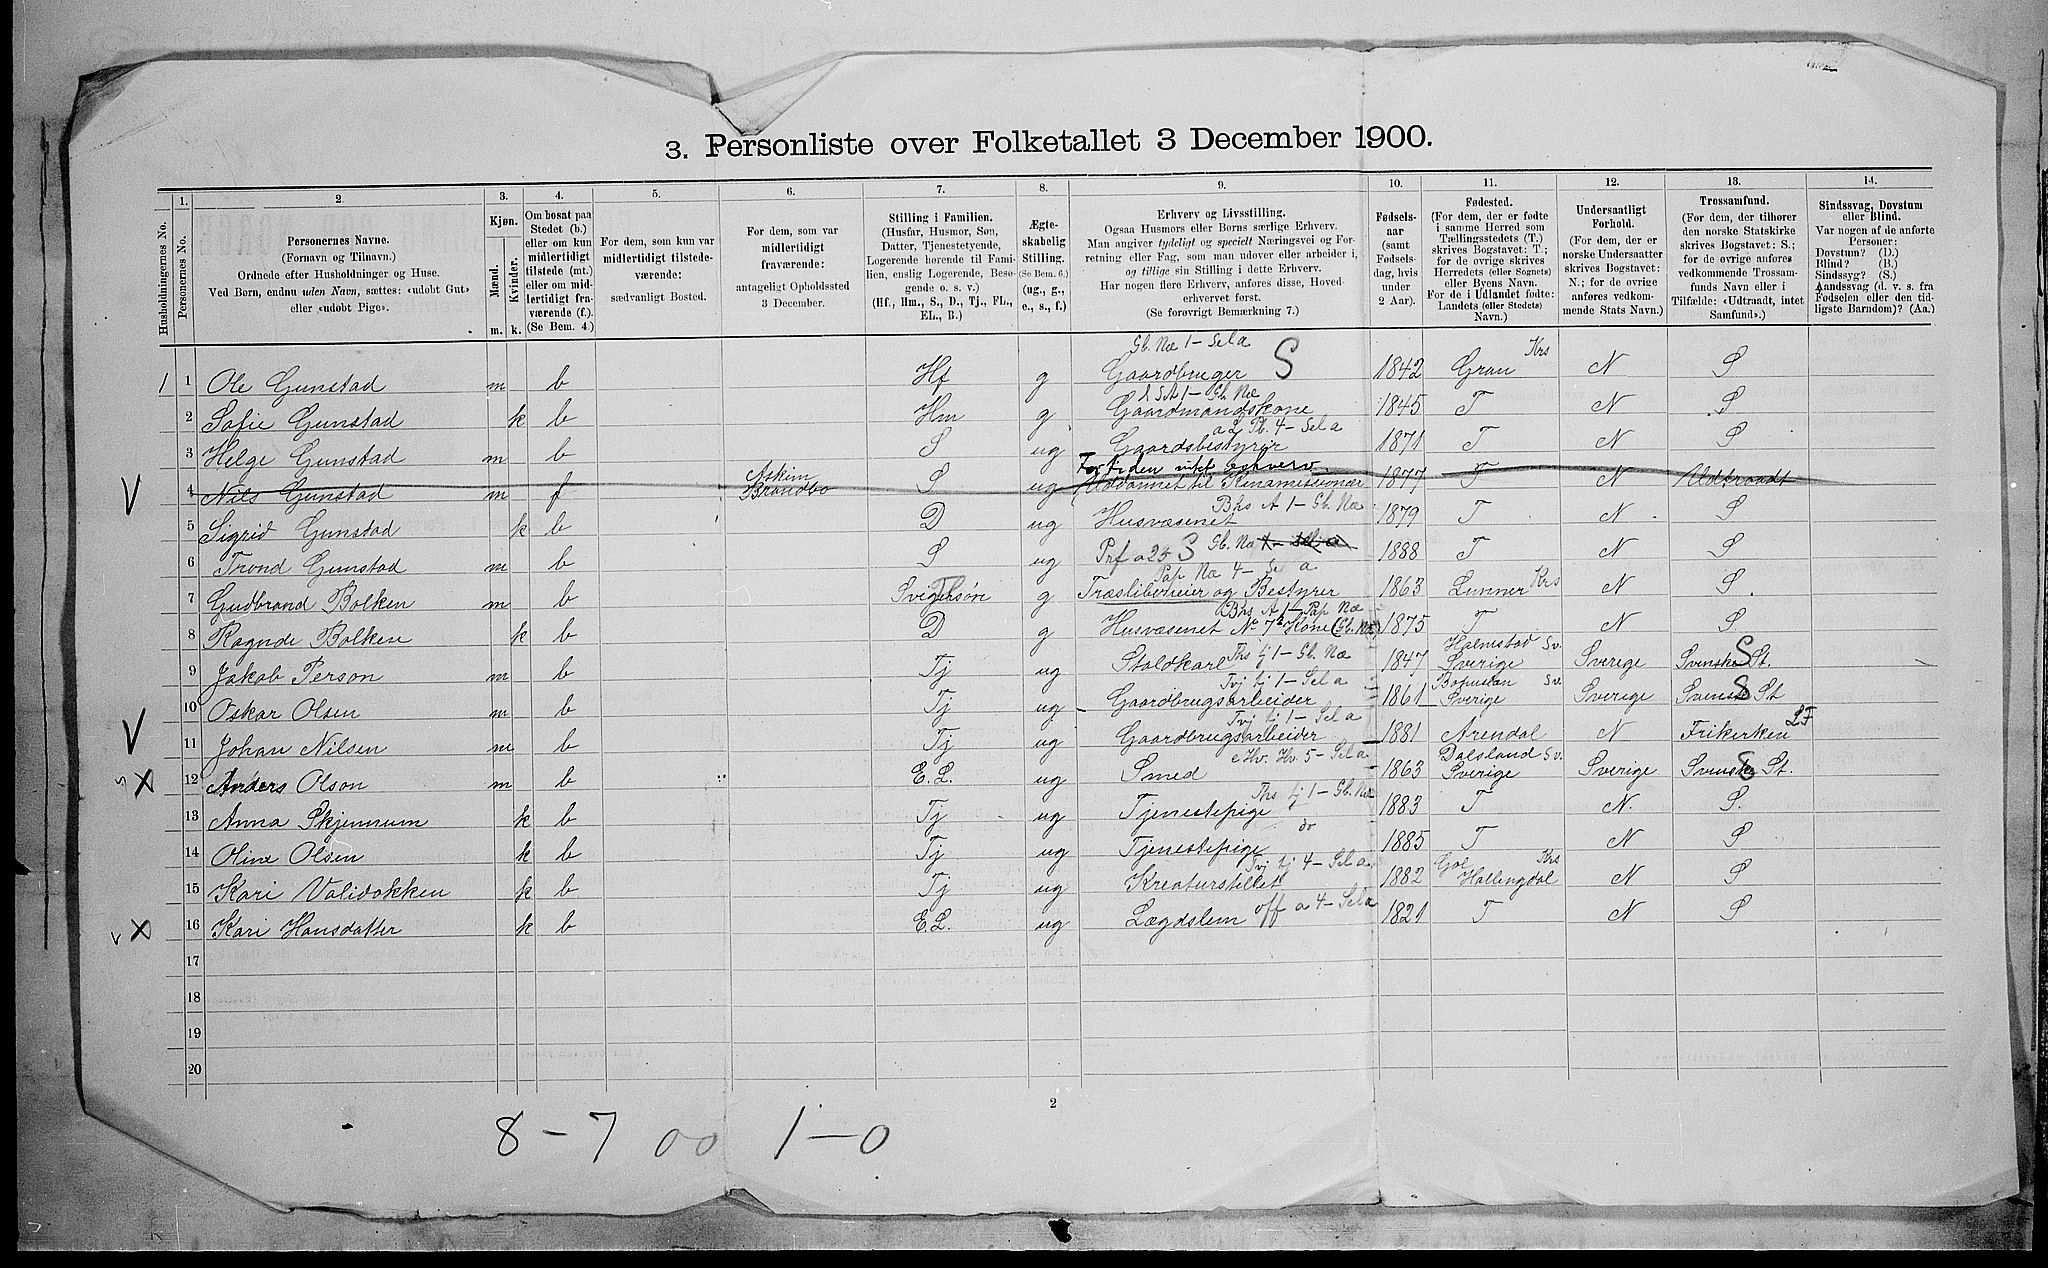 3. Personliste over Folketallet 3 December 1900.
Husholdningernes No.
1. Personernes No.
2. Personernes Navne. (Fornavn og Tilnavn.) Ordnede efter Husholdninger og Huse. Ved Børn, endnu uden Navn, sættes: «udøbt Gut» eller «udøbt Pige».
3. Kjøn. Mænd. m. Kvinder. k.
4. Om bosat paa Stedet (b.) eller om kun midlertidigt tilstede (mt.) eller om midlertidigt fraværende (f.) (Se Bem. 4.)
5. For dem, som kun var midlertidigt tilstedeværende: sædvanligt Bosted.
6. For dem, som var midlertidigt fraværende: antageligt Opholdssted 3 December.
7. Stilling i Familien. (Husfar, Husmor, Søn, Datter, Tjenestetyende, Logerende hørende til Familien, enslig Logerende, Besøgende o. s. v.) (Hf., Hm., S., D., Tj., FL., EL., B.)
8. Ægteskabelig Stilling. (Se Bem. 6.) (ug., g., e., s., f.)
9. Erhverv og Livsstilling. Ogsaa Husmors eller Børns særlige Erhverv. Man angiver tydeligt og specielt Næringsvei og Forretning eller Fag, som man udøver eller arbeider i, og tillige sin Stilling i dette Erhverv. Har nogen flere Erhverv, anføres disse, Hovederhvervet først. (Se forøvrigt Bemærkning 7.)
10. Fødselsaar (samt Fødselsdag, hvis under 2 Aar).
11. Fødested. (For dem, der er fødte i samme Herred som Tællingsstedets (T.) skrives Bogstavet: T.; for de øvrige skrives Herredets (eller Sognets) eller Byens Navn. For de i Udlandet fødte: Landets (eller Stedets) Navn.)
12. Undersaatligt Forhold. (For dem, der er norske Undersaatter skrives Bogstavet: N.; for de øvrige anføres vedkommende Stats Navn.)
13. Trossamfund. (For dem, der tilhører den norske Statskirke skrives Bogstavet: S.; for de øvrige anføres vedkommende Trossamfunds Navn eller i Tilfælde: «Udtraadt, intet Samfund».)
14. Sindssvag, Døvstum eller Blind. Var nogen af de anførte Personer: Døvstum? (D.) Blind? (B.) Sindssyg? (S.) Aandssvag (d. v. s. fra Fødselen eller den tidligste Barndom)? (Aa.)
Gb. Næ 1 - Sel a
1 1 Ole Gunstad m b Hf g Gaardbruger S 1842 Gran Krs N S
2 Sofie Gunstad k b Hm g Gaardmandskone 1845 T N S
3 Helge Gunstad m b S ug Gaardsbestyrer 1871 T N S
V 4 Nils Gunstad m f Askim S ug For tiden uden erhverv Uddannet til 1877 T N Udtraadt
5 Sigrid Gunstad k b D ug Husvæsenet Bhs A 1 - Gb. Næ 1879 T N S
6 Trond Gunstad m b S ug S Gb. Næ 1888 T N S
7 Gudbrand Bolken m b Svigersøn g Træsliberieier og Bestyrer 1863 Lunner Krs N S.
8 Ragnde Bolken k b D g Husvæsenet No 7s Kone (Gb. Næ) 1875 T N S.
9 Jakob Person m b Tj ug Staldkarl Ths tj 1 - Gb. Næ 1847 Halmstad Sv. Sverige Sverige Svenske St. S
10 Oskar Olsen m b Tj ug Gaardbrugsarbeider Tvj tj 1 - Sel a 1861 Sv Sverige Sverige Svenske St S
V 11 Johan Nilsen m b Tj ug Gaardbrugsarbeider Tvj tj 1 - Sel a 1881 Arendal N Frikirken LF
X 12 Anders Olson m b E.L. ug Smed Hv. 5 - Sel a 1863 Dalsland Sv. Sverige Sverige Svenske St. S
13 Anna Skjennum k b Tj ug Tjenestepige Ths tj 1 - Gb. Næ 1883 T N. S.
14 Oline Olsen k b Tj ug Tjenestepige do 1885 T N S
15 Kari Validokken k b Tj ug Kreaturstellet Tvj tj 4 - Sel a 1882 Gol Hallingdal Krs N S
X 16 Kari Hansdatter k b E.L. ug Lægdslem off a 4 - Sel a 1821 T N S
17
18
19
20
2
8 - 7 00 1 - 0